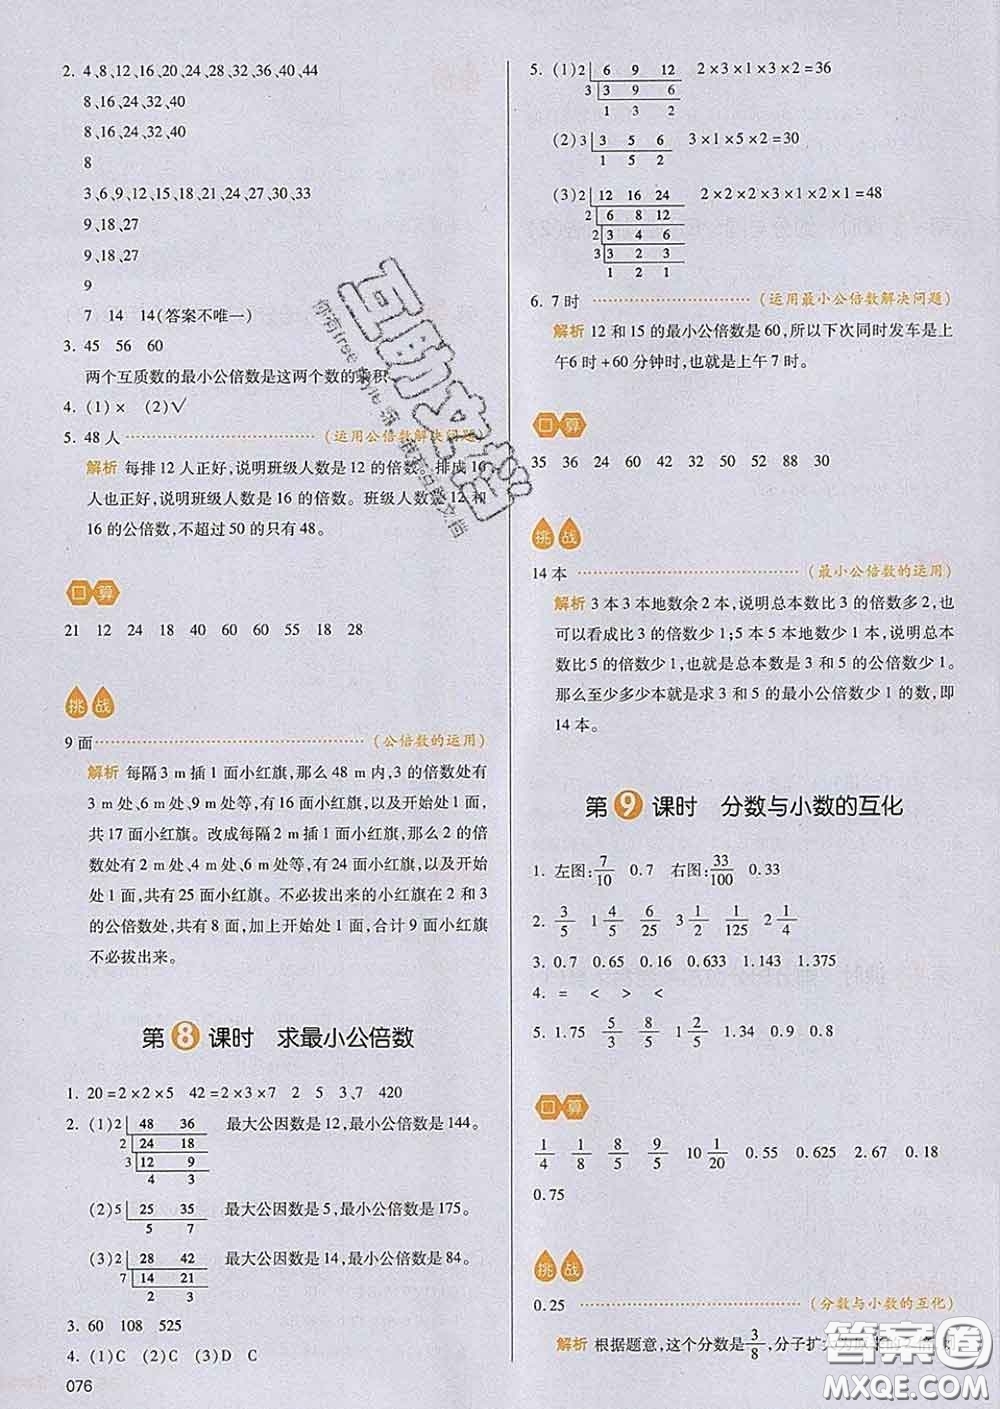 2. 4、8、12、16、20、24、28、32、36、40、44
8、16、24、32、40
8、16、24、32、40
8
3、6、9、12、15、18、21、24、27、30、33
9、18、27
9、18、27
9
7 14 14(答案不唯一)
3. 45 56 60
两个互质数的最小公倍数是这两个数的乘积
4. (1)× (2)√
5. 48人 (运用公倍数解决问题)
解析 每排12人正好,说明班级人数是12的倍数。排成16
人也正好,说明班级人数是16的倍数。班级人数是12和
16的公倍数,不超过50的只有48。
口算
21 12 24 18 40 60 60 55 18 28
挑战
9面 (公倍数的运用)
解析 每隔3 m插1面小红旗,那么48 m内,3的倍数处有
3 m处、6 m处、9 m处等,有16面小红旗,以及开始处1面,
共17面小红旗。改成每隔2 m插1面小红旗,那么2的倍
数处有2 m处、4 m处、6 m处等,有24面小红旗,以及开始
处1面,共有25面小红旗。不必拔出来的小红旗在2和3
的公倍数处,共有8面,加上开始处1面,合计9面小红旗
不必拔出来。
第8课时 求最小公倍数
1. 20=2×2×5 42=2×3×7 2 5 3、7 420
2. (1) 2 48 36 最大公因数是12,最小公倍数是144。
2 24 18
3 12 9
4 3
(2) 5 25 35 最大公因数是5,最小公倍数是175。
5 7
(3) 2 28 42 最大公因数是14,最小公倍数是84。
7 14 21
2 3
3. 60 108 525
4. (1)C (2)C (3)D C
076
5. (1) 2 6 9 12 2×3×1×3×2=36
3 3 9 6
1 3 2
(2) 3 3 5 6 3×1×5×2=30
1 5 2
(3) 2 12 16 24 2×2×2×3×1×2×1=48
2 6 8 12
2 3 4 6
3 3 2 3
1 2 1
6. 7时 (运用最小公倍数解决问题)
解析 12和15的最小公倍数是60,所以下次同时发车是上
午6时+60分钟时,也就是上午7时。
口算
35 36 24 60 42 32 50 52 88 30
挑战
14本 (最小公倍数的运用)
解析 3本3本地数余2本,说明总本数比3的倍数多2,也
可以看成比3的倍数少1;5本5本地数少1本,说明总本
数比5的倍数少1,也就是总本数是3和5的公倍数少1。
那么至少多少本就是求3和5的最小公倍数少1的数,即
14本。
第9课时 分数与小数的互化
1. 左图:7/10 0.7 右图:33/100 0.33
2. 3/5 1 4/5 6/25 3 1/2 1/125 2 1/4
3. 0.7 0.65 0.16 0.633 1.143 1.375
4. = < > <
5. 1.75 5/3 8/5 1 2/5 1.34 0.9 0.89
口算
1/4 1/8 8/5 9/5 10 1/20 0.55 0.625 2.67 0.18
0.75
挑战
0.25 (分数与小数的互化)
解析 根据题意,这个分数是3/8,分子扩大
答案圈
MXQE.COM
互助文档